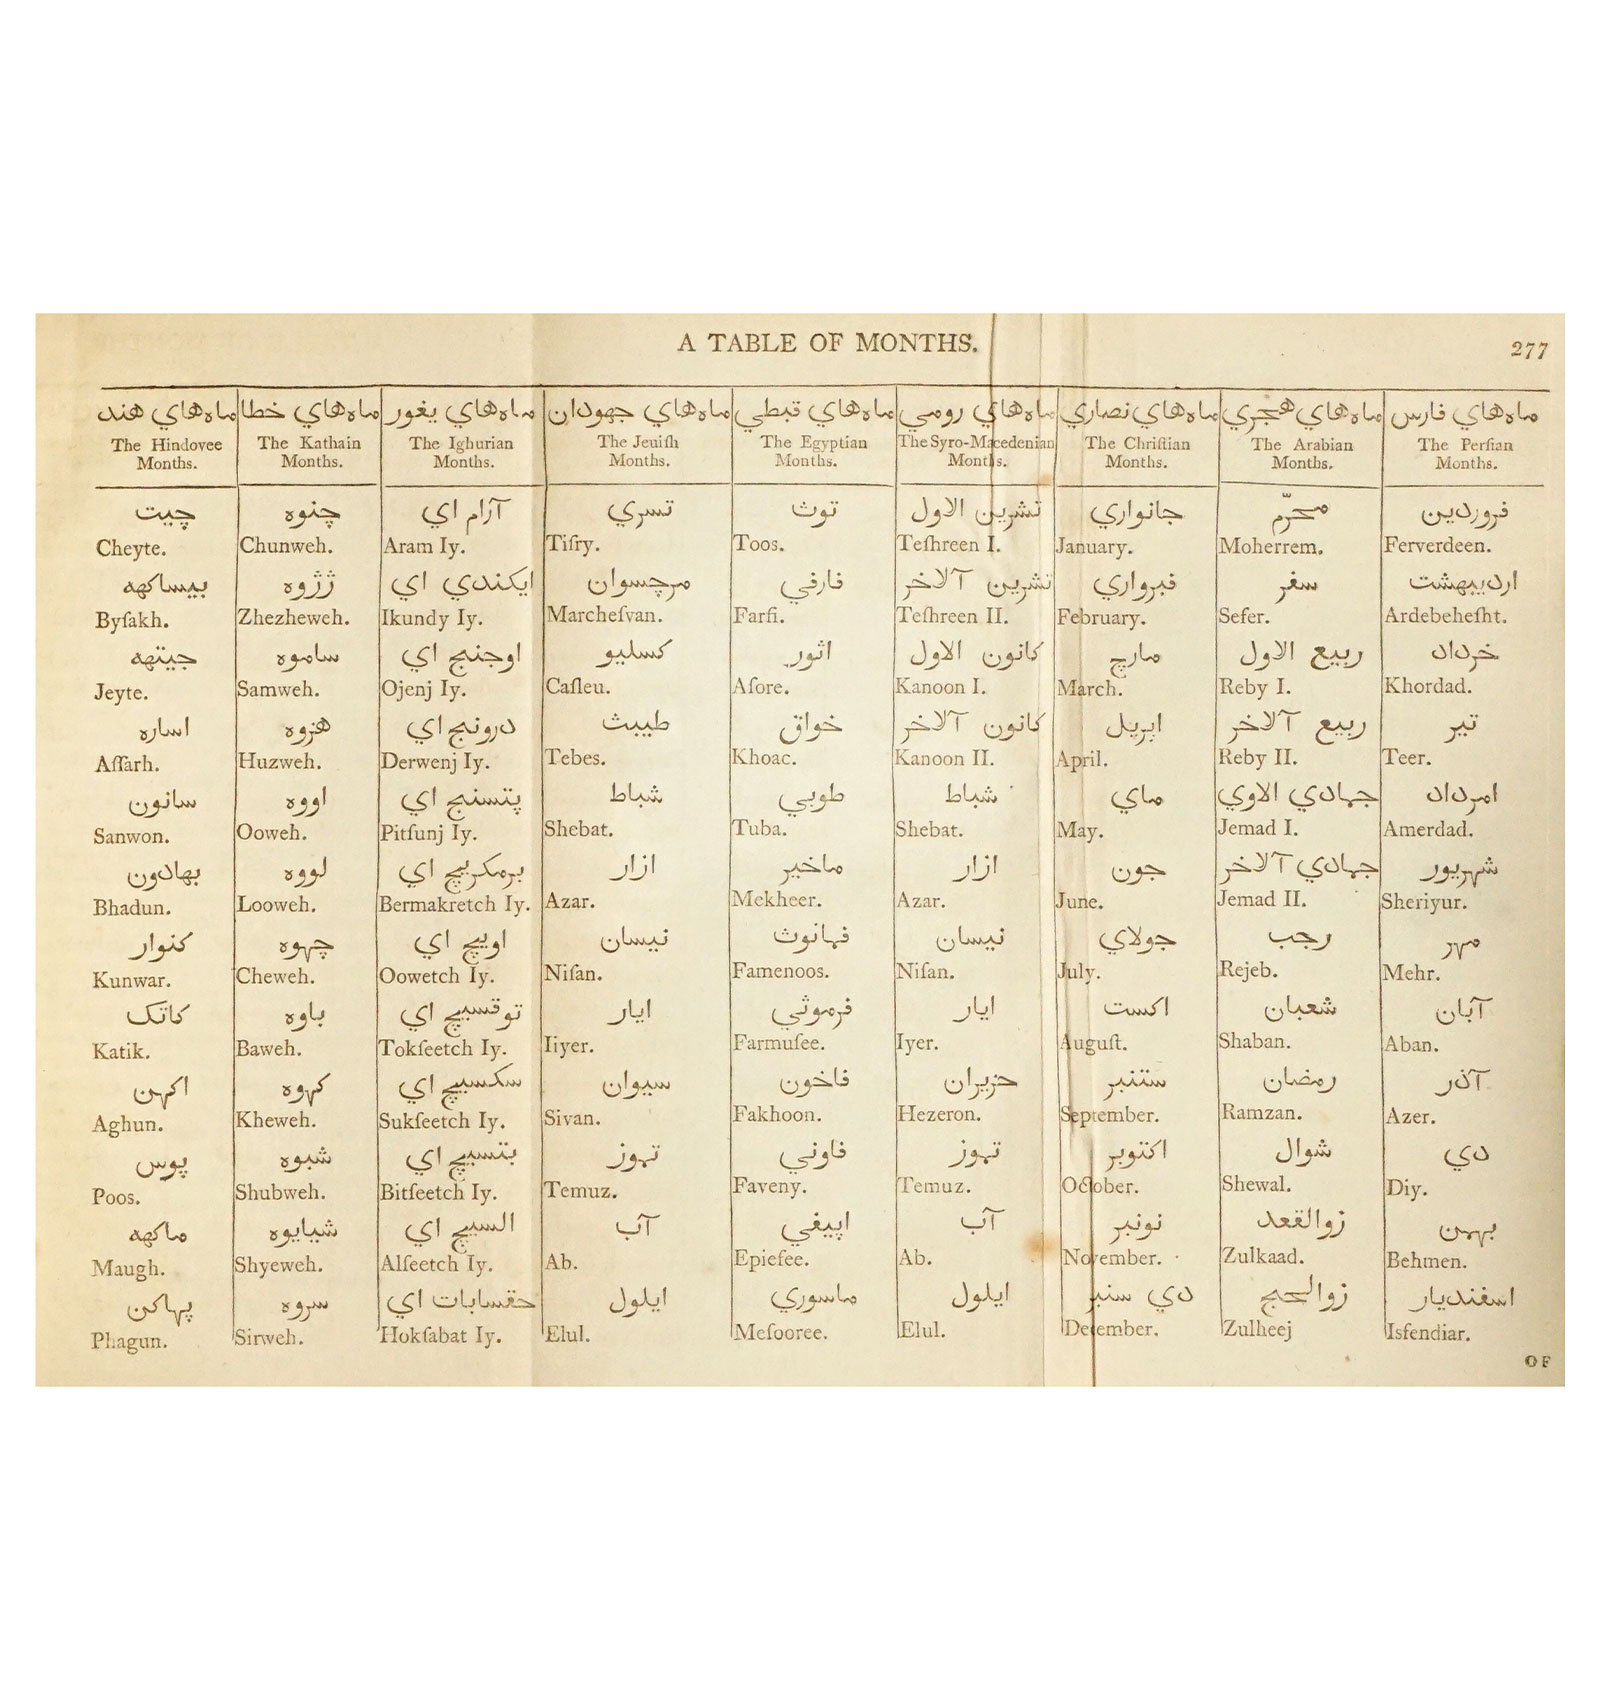 A TABLE OF MONTHS.
277
ماه‌هاي هند ماه‌هاي خطا ماه‌هاي يغور ماه‌هاي جهودان ماه‌هاي قبطي ماه‌هاي رومي ماه‌هاي نصاري ماه‌هاي هجري ماه‌هاي فارس
The Hindovee The Kathain The Ighurian The Jeuiſh The Egyptian The Syro-Macedenian The Chriſtian The Arabian The Perſian
Months. Months. Months. Months. Months. Months. Months. Months. Months.
چيت چنوه آرام اي تسري توث تشرين الاول جانواري محرّم فروردين
Cheyte. Chunweh. Aram Iy. Tiſry. Toos. Teſhreen I. January. Moherrem. Ferverdeen.
بيساكهه ژژوه ايكندي اي مرچسوان فارفي تشرين آلاخر فبرواري سفر ارديبهشت
Byſakh. Zhezheweh. Ikundy Iy. Marcheſvan. Farſi. Teſhreen II. February. Sefer. Ardebeheſht.
جيتهه ساموه اوجنج اي كسليو اثور كانون الاول مارچ ربيع الاول خرداد
Jeyte. Samweh. Ojenj Iy. Caſleu. Aſore. Kanoon I. March. Reby I. Khordad.
اساره هزوه درونج اي طيبث خواق كانون آلاخر اپريل ربيع آلاخر تير
Aſſarh. Huzweh. Derwenj Iy. Tebes. Khoac. Kanoon II. April. Reby II. Teer.
سانون اووه پتسنج اي شباط طوبي شباط ماي جمادي الاوي امرداد
Sanwon. Ooweh. Pitſunj Iy. Shebat. Tuba. Shebat. May. Jemad I. Amerdad.
بهادون لووه برمكريچ اي ازار ماخير ازار جون جمادي آلاخر شهريور
Bhadun. Looweh. Bermakretch Iy. Azar. Mekheer. Azar. June. Jemad II. Sheriyur.
كنوار چهوه اويچ اي نيسان فمانوث نيسان جولاي رجب مهر
Kunwar. Cheweh. Oowetch Iy. Niſan. Famenoos. Niſan. July. Rejeb. Mehr.
كاتک باوه توقسيچ اي ايار فرموثي ايار اكست شعبان آبان
Katik. Baweh. Tokſeetch Iy. Iiyer. Farmuſee. Iyer. Auguſt. Shaban. Aban.
اكهن كهوه سكسيچ اي سيوان فاخون حزيران ستنبر رمضان آذر
Aghun. Kheweh. Sukſeetch Iy. Sivan. Fakhoon. Hezeron. September. Ramzan. Azer.
پوس شبوه بتسيچ اي تموز فاوني تموز اكتوبر شوال دي
Poos. Shubweh. Bitſeetch Iy. Temuz. Faveny. Temuz. October. Shewal. Diy.
ماكهه شيايوه السيچ اي آب اپيفي آب نونبر زوالقعد بهمن
Maugh. Shyeweh. Alſeetch Iy. Ab. Epieſee. Ab. November. Zulkaad. Behmen.
پهاكن سروه حقسابات اي ايلول ماسوري ايلول دي سنبر زوالحج اسفنديار
Phagun. Sirweh. Hokſabat Iy. Elul. Meſooree. Elul. December. Zulheej Isfendiar.
OF